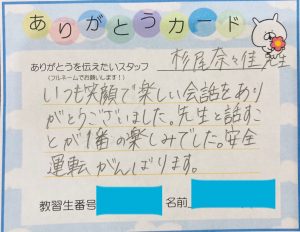 ありがとうカード
ありがとうを伝えたいスタッフ
(フルネームでお願いします!)
杉尾奈々佳先生
いつも笑顔で楽しい会話をあり
がとうございました。先生と話すこ
とが1番の楽しみでした。安全
運転がんばります。
教習生番号 名前